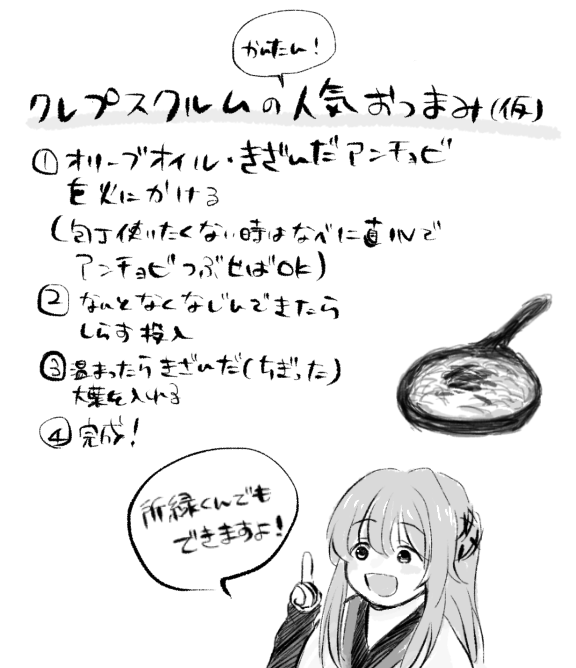 かんたん!
クレプスクルムの人気おつまみ(仮)
①オリーブオイル・きざんだアンチョビ
を火にかける
(包丁使いたくない時はなべに直INで
アンチョビつぶせばOK)
②なんとなくなじんできたら
しらす投入
③温まったらきざんだ(ちぎった)
大葉を入れる
④完成!
所縁くんでも
できますよ!